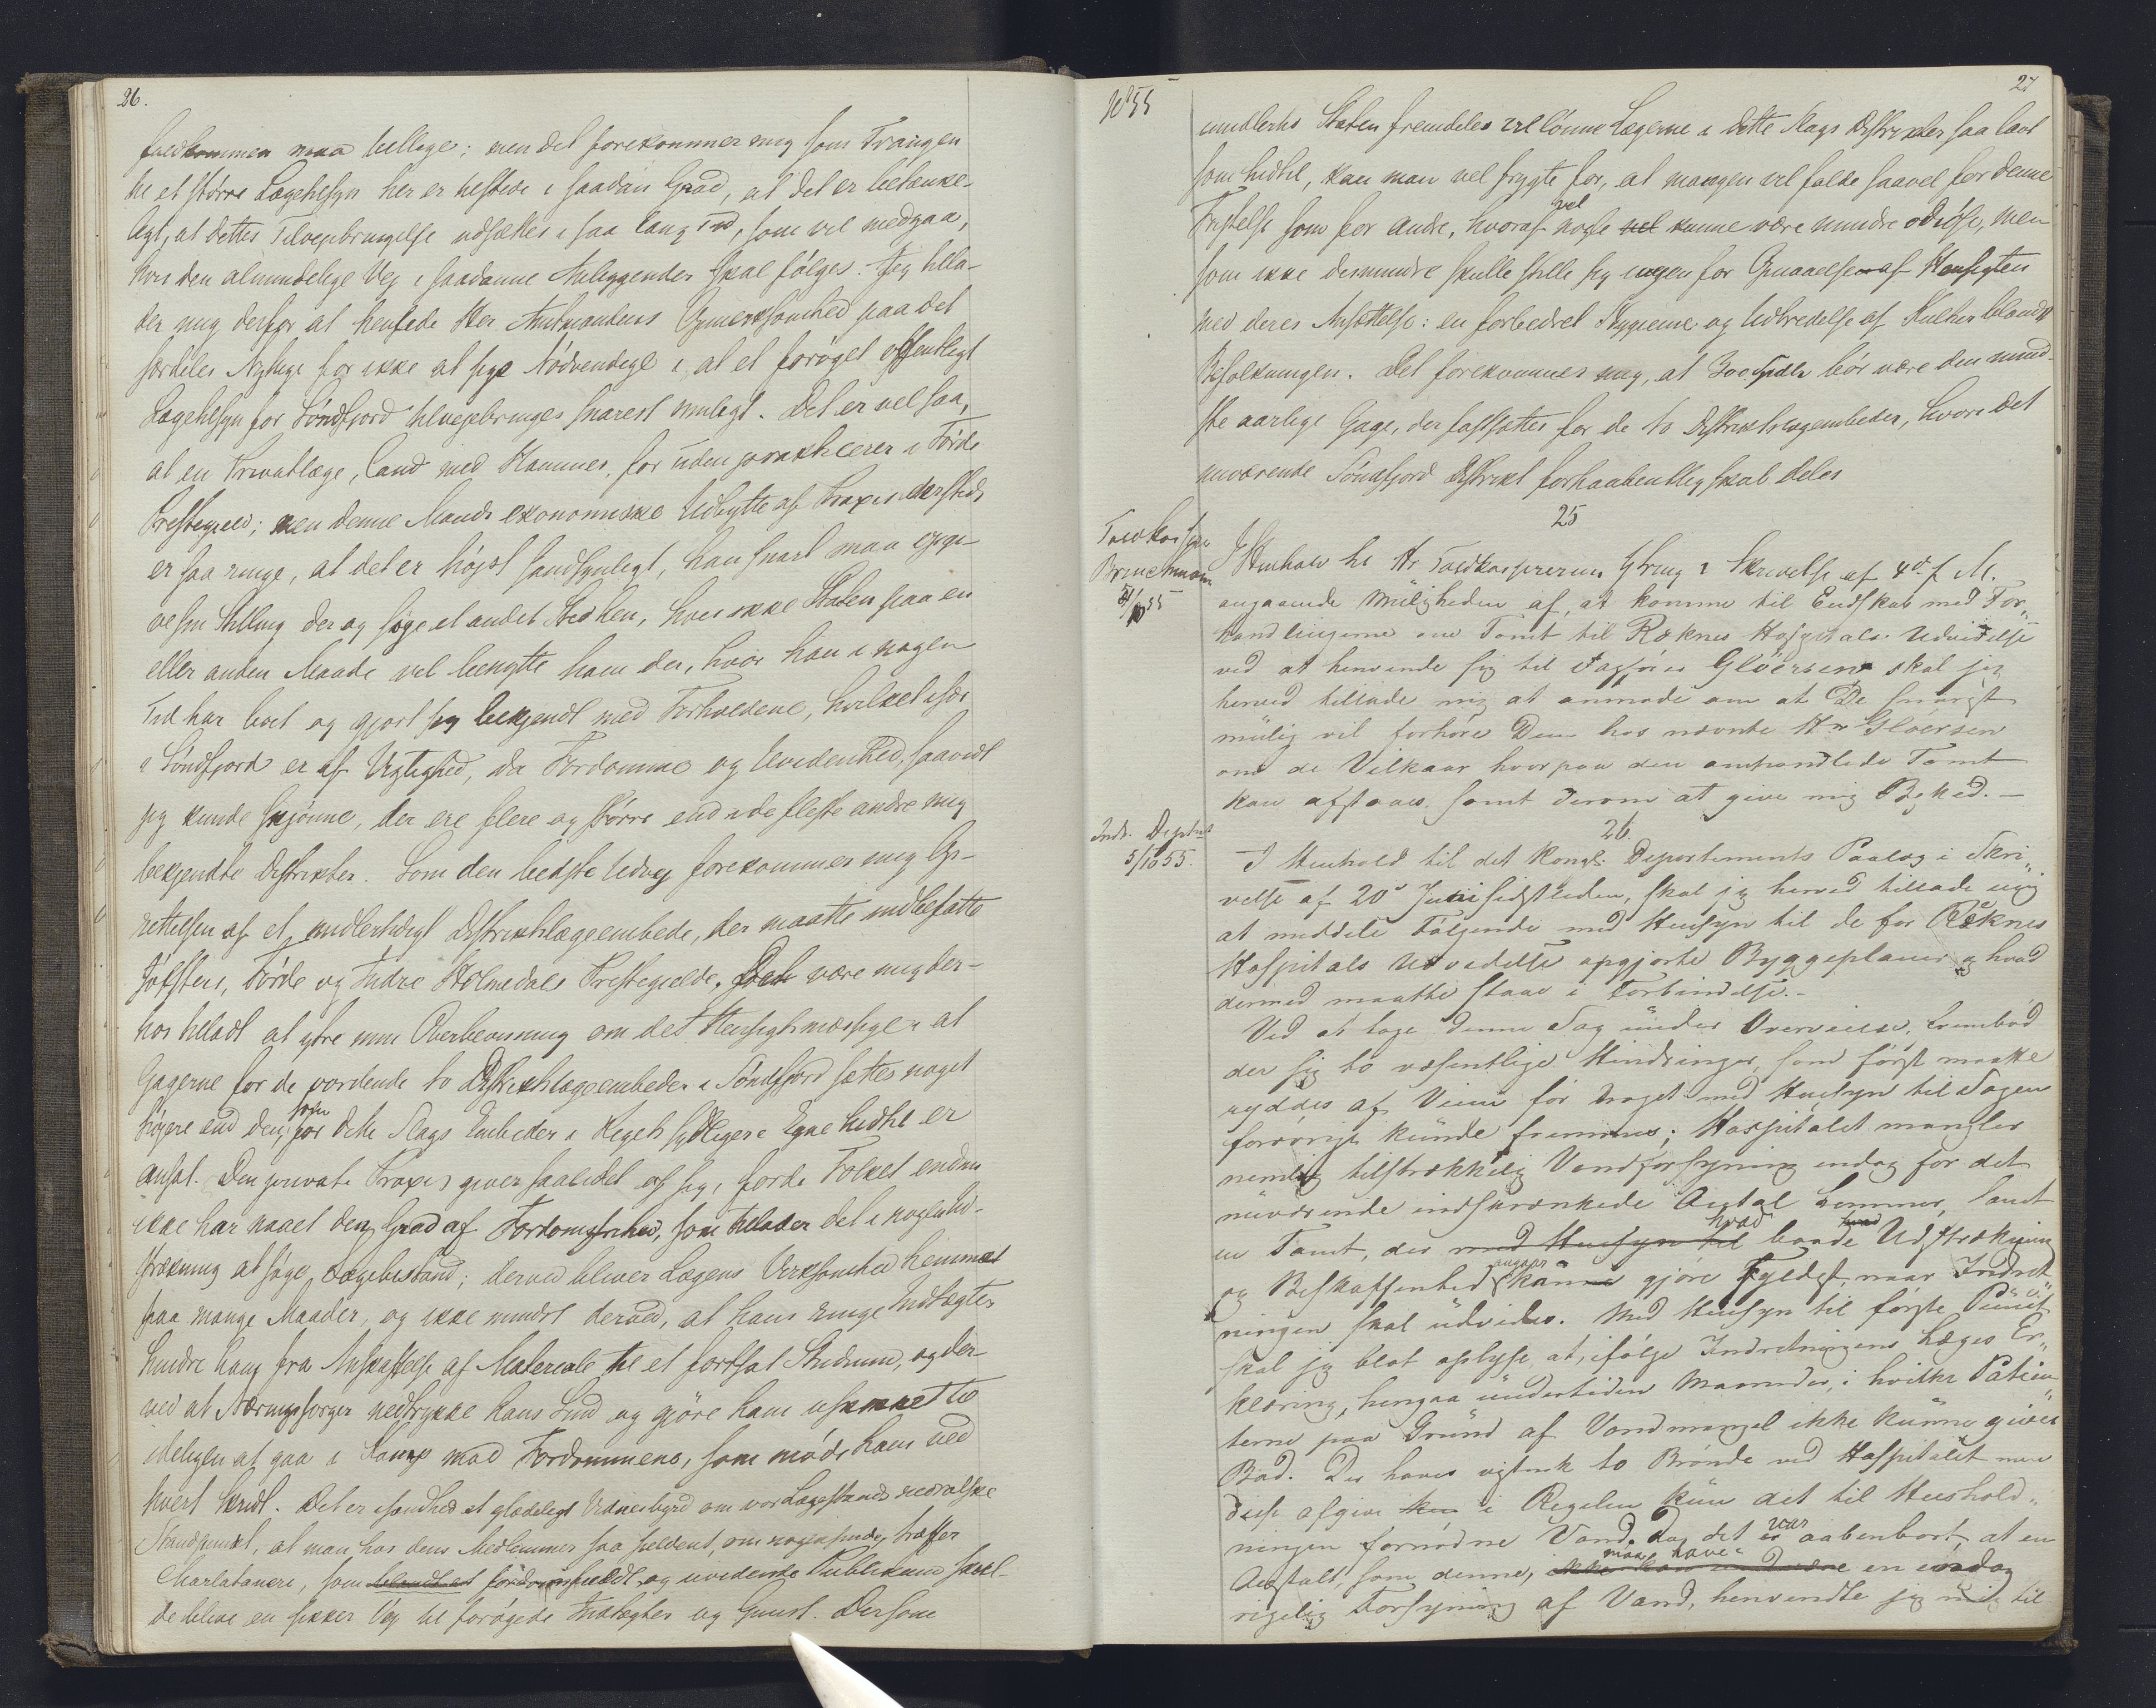 26.
fuldkommen maa billige; men det forekommer mig som Trangen
til et større Lægetilsyn her er tilstede i saadan Grad, at det er betænke-
ligt, at dettes Tilvejebringelse udsættes i saa lang Tid, som vil medgaa,
hvis den almindelige Vej i saadanne Anliggender skal følges. Jeg tilla-
der mig derfor at henlede Her Amtmandens Opmerksomhed paa det
særdeles Nyttige for ikke at sige Nødvendige i, at et forøget offentligt
Lægetilsyn for Søndfjord tilvejebringes snarest muligt. Det er vel saa,
at en Privatlæge, Cand. med. Hammer, for tiden praktiserer i Førde
Prestegjeld; men denne Mands ekonomiske Udbytte af Praxis dersteds
er saa ringe, at det er højst sandsynligt, han snart maa opgi-
ve sin Stilling der og søge et andet Sted hen, hvis ikke Staten paa en
eller anden Maade vil benytte ham der, hvor han i nogen
Tid har boet og gjort sig bekjendt med Forholdene, hvilket især
i Søndfjord er af Vigtighed, da Fordomme og Uvidenhed, saavidt
jeg kunde skjønne, der ere flere og større end i de fleste andre mig
bekjendte Distrikter. Som den bedste Udvej forekommer mig Op-
rettelsen af et midlertidigt Distriktslægeembede, der maatte indbefatte
Jølster, Førde og Indre Holmedals Prestegjelde. Det være mig der-
hos tilladt at ytre min Overbevisning om det Hensigtsmæssige i at
Gagerne for de vordende to Distriktslægeembeder i Søndfjord sættes noget
højere end den, som for dette Slags Embeder i Rigets sydligere Egne hidtil er
ansat. Den private Praxis giver saa lidet af sig, fordi Folket endnu
ikke har naaet den Grad af Fordomsfrihed, som tillader det i nogen Ud-
strækning at søge Lægebistand; derved bliver Lægens Virksomhed hemmet
paa mange Maader, og ikke mindst derved, at hans ringe Indtægter
hindre ham fra Anskaffelse af Materiale til et fortsat Studium, og der-
ved at Næringssorger nedtrykke hans Sind og gjøre ham uskikket til
ideligen at gaa i Kamp mod Fordommene, som møde ham ved
hvert Skridt. Det er isandhed et glædeligt Vidnesbyrd om vor Lægestands moralske
Standpunkt, at man hos dens Medlemmer saa sjeldent, om nogensinde, træffer
Charlataneri, som blandt et fordomsfuldt og uvidende Publikum skul-
de blive en sikker Vej til forøgede Indtægter og Gunst. Dersom
1855
27
imidlertid Staten fremdeles vil lønne Lægerne i dette Slags Distrikter saa lavt
som hidtil, kan man vel frygte for, at mangen vil falde saavel for denne
Fristelse som for andre, hvoraf nogle vel kunne være mindre odiøse, men
som ikke desmindre skulle stille sig i Vejen for Opnaaelsen af Hensigten
med deres Ansættelse: en forbedret Hygieine og Udbredelse af Kultur blandt
Befolkningen. Det forekommer mig, at 300 Spdlr bør være den mind-
ste aarlige Gage, der fastsættes for de to Distriktslægeembeder, hvori det
nuværende Søndfjords Distrikt forhaabentlig skal deles
25
Toldkasserer
Brinchmann
I Henhold til Hr Toldkassererens Ytring i Skrivelse af 4de f. M.
angaaende Muligheden af, at komme til Endskab med For-
handlingerne om Tomt til Reknes Hospitals Udvidelse
ved at henvende sig til Sagfører Gløersen skal jeg
herved tillade mig at anmode om at De snarest
mulig vil forhøre Dem hos nævnte Hr Gløersen
om de Vilkaar hvorpaa den omhandlede Tomt
kan afstaaes, samt derom at give mig Besked. —
26.
Indr. Deptmt
5/10 55.
I Henhold til det kongl. Departements Paalæg i Skri-
velse af 20de Juni sidstleden, skal jeg herved tillade mig
at meddele Følgende med Hensyn til de for Reknes
Hospitals Udvidelse opgjorte Byggeplaner og hvad
dermed maatte staae i Forbindelse. —
Ved at tage denne Sag under Overveielse, frembød
der sig to væsentlige Hindringer, som først maatte
ryddes af Veien før Noget med Hensyn til Sagen
forøvrigt kunde fremmes; Hospitalet mangler
nemlig tilstrækkelig Vandforsyning endog for det
nuværende indskrænkede Antal Lemmer, samt
en Tomt, der med Hensyn til hvad baade Udstrækning
og Beskaffenhed angaar kunne gjøre Fyldest, naar Indret-
ningen skal udvides. Med Hensyn til første Punct
skal jeg blot oplyse at, ifølge Indretningens Læges Er-
klæring, hengaa undertiden Maaneder, i hvilke Patien-
terne paa Grund af Vandmangel ikke kunne gives
Bad. Der haves vistnok to Brønde ved Hospitalet men
disse afgive kun i Regelen kun det til Hushold-
ningen fornødne Vand. Da det var aabenbart, at en
Anstalt, som denne, maa have en endog
rigelig Forsyning af Vand, henvendte jeg mig til